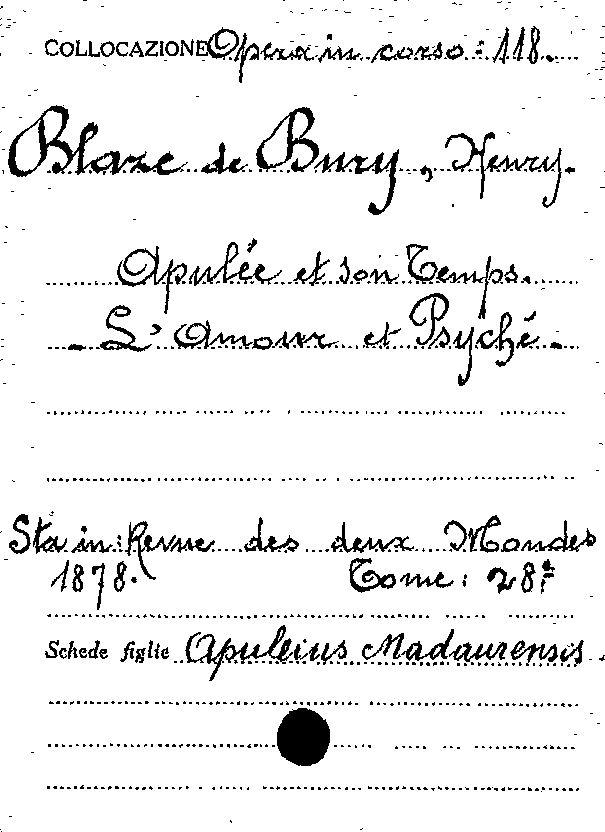 COLLOCAZIONE Opera in corso: 118.
Blaze de Bury, Henry.
Apulée et son Temps.
- L'Amour et Psyché -
Sta in: Revue des deux Mondes
1878. Tome: 28º
Schede figlie Apuleius Madaurensis.